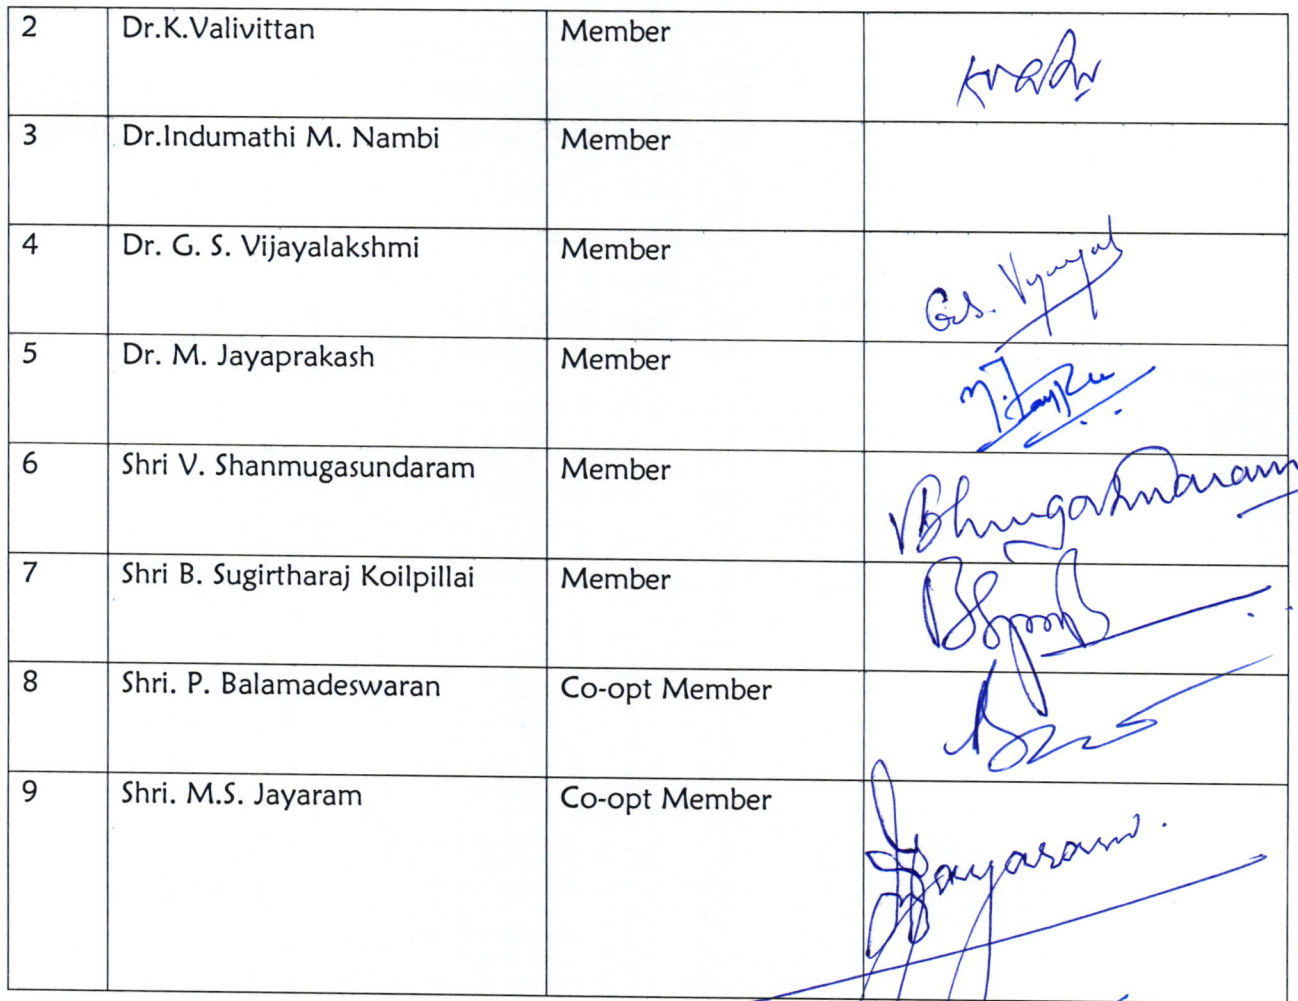 2 Dr.K.Valivittan Member
3 Dr.Indumathi M. Nambi Member
4 Dr. G. S. Vijayalakshmi Member
G.S.
5 Dr. M. Jayaprakash Member
6 Shri V. Shanmugasundaram Member
7 Shri B. Sugirtharaj Koilpillai Member
8 Shri. P. Balamadeswaran Co-opt Member
9 Shri. M.S. Jayaram Co-opt Member
Jayaram